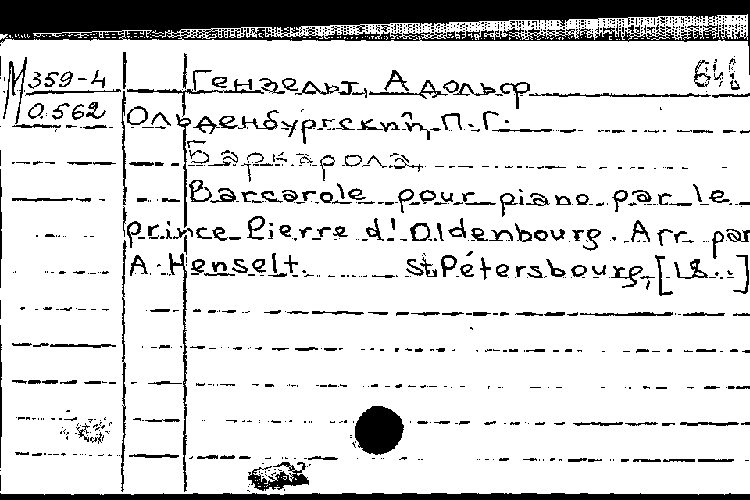 М 359-4 Гензельт, Адольф 648
О.562 Ольденбургский, П.Г.
Баркарола,
Barcarole pour piano par le
prince Pierre d'Oldenbourg. Arr par
A. Henselt. St.Pétersbourg, [18..]